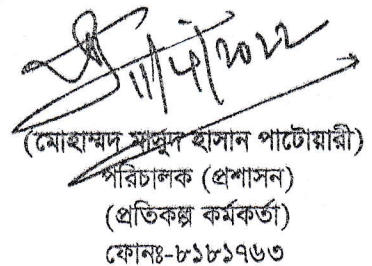 ১১/৮/২০২২
(মোহাম্মদ মাসুদ হাসান পাটোয়ারী)
পরিচালক (প্রশাসন)
(প্রতিকল্প কর্মকর্তা)
ফোনঃ-৮১৮১৭৬৩